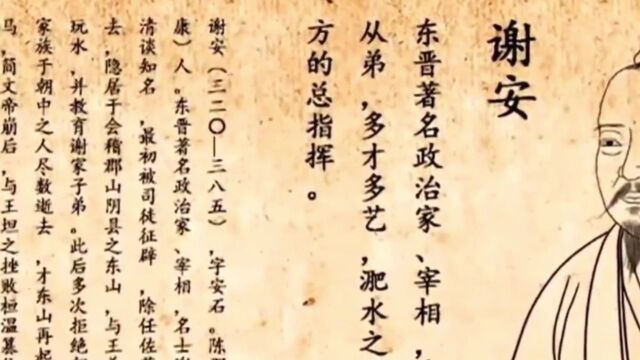 谢安
东晋著名政治家、宰相,
从弟,多才多艺,淝水之
方的总指挥。
谢安(三二〇—三八五),字安石。陈
康)人。东晋著名政治家、宰相,名士
清谈知名,最初被司徒征辟,除任佐
去,隐居于会稽郡山阴县之东山,与王
玩水,并教育谢家子弟。此后多次拒绝
家族于朝中之人尽数逝去,才东山再起
马,简文帝崩后,与王坦之挫败桓温篡